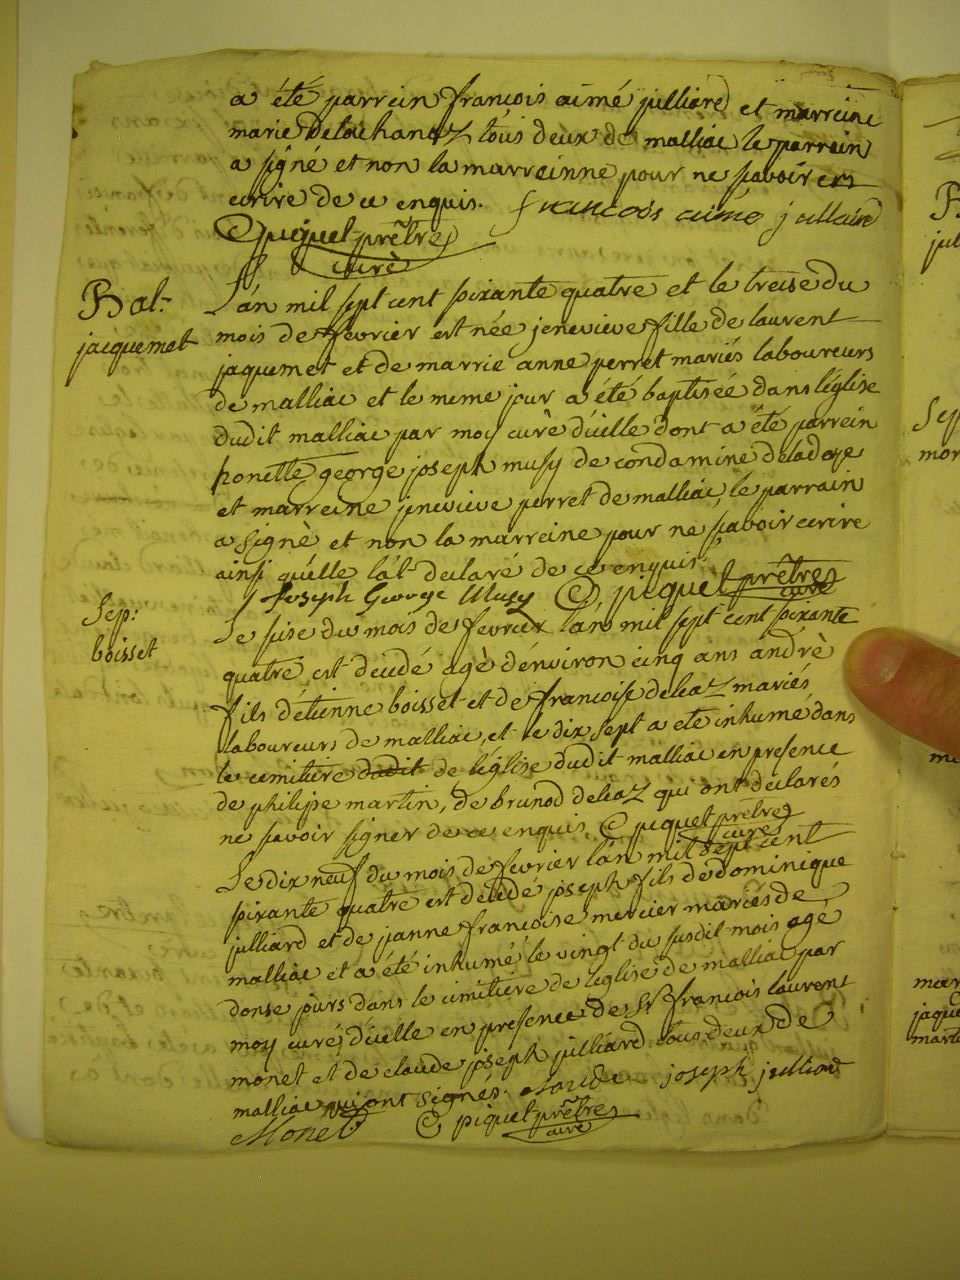 a été parrein françois aimé julliard et marreine
marie delachanaz tous deux de malliac le parrein
a signé et non la marreinne pour ne savoir
ecrire de ce enquis. françois aimé jullaird
C piquet prêtre
curè
Bat:
jaiquemet
L'an mil sept cent soixante quatre et le treise du
mois de février est née jenevieve fille de laurent
jaquemet et de marrie anne perret mariés laboureurs
de malliac et le meme jour a été baptisée dans l'églize
dudit malliac par moy curè d'icelle dont a été parrein
honette george joseph musy de condamine deladoye
et marreine jenevieve perret de malliac, le parrain
a signè et non la marreine pour ne savoir ecrire
ainsi qu'elle l'at declaré de ce enquis.
Joseph George Musy C piquet prêtre
curé
Sep:
boisset
Le seise du mois de fevrier l'an mil sept cent soixante
quatre est décédé agè d'environ cinq ans andrè
fils d'étienne boisset et de françoise deleaz mariés
laboureurs de malliac, et le dix sept a eté inhumé dans
le cemitiere dudit de l'églize dudit malliac en presence
de philipe martin, de brunod deleaz qui ont déclarés
ne savoir signer de ce enquis. C piquet prêtre
curé
Le dix neuf du mois de fevrier l'an mil sept cent
soixante quatre est décédé joseph fils de dominique
julliard et de janne francoise mercier mariés de
malliac et a été inhumé le vingt du susdit mois agé
donse jours dans le cimitiere de l'eglise de malliac par
moy curé d'icelle en presence de Sr françois laurent
monet et de claude joseph julliard tous deux de
malliac qui ont signés. claude joseph julliard
Monet C piquet prêtre
curé